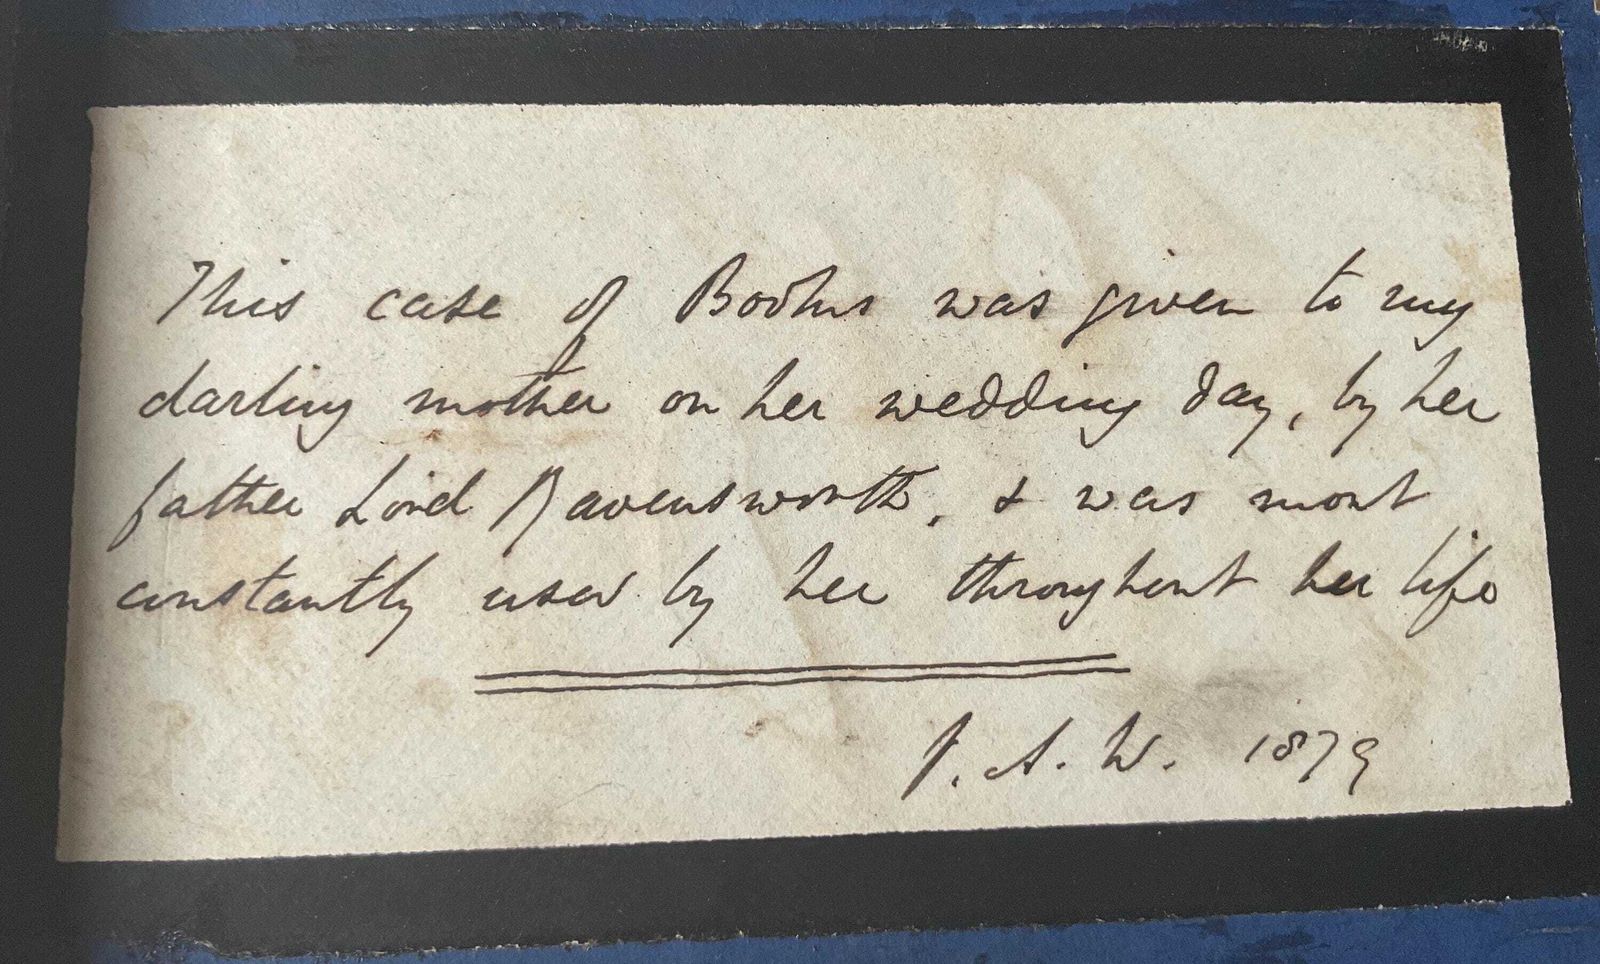 This case of Books was given to my
darling mother on her wedding day, by her
father Lord Ravensworth, & was most
constantly used by her throughout her life
J. A. W. 1879